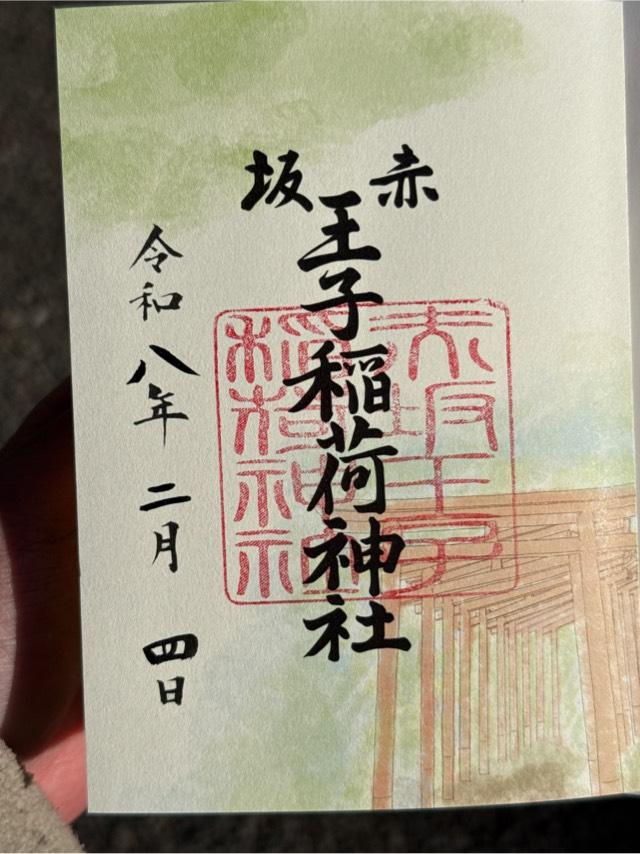 赤坂
王子稲荷神社
赤坂王子
稲荷神社
令和八年二月四日